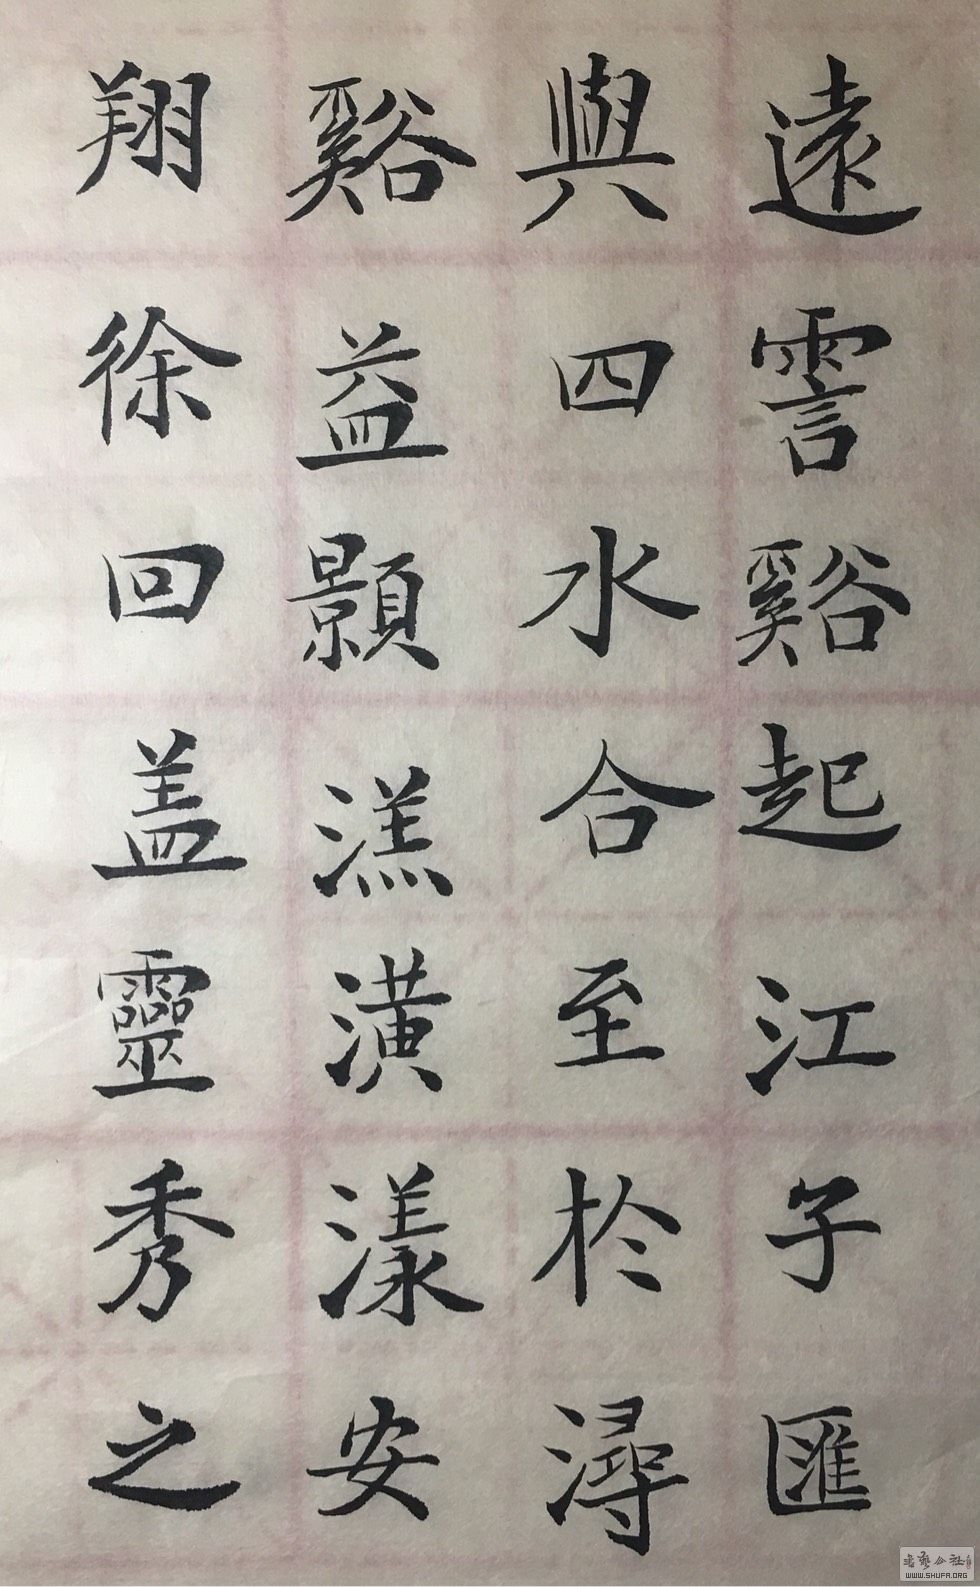 遠霅谿起江子匯
與四水合至於潯
谿益顥漾潢漾安
翔徐回盖靈秀之
書藝公社
WWW.SHUFA.ORG